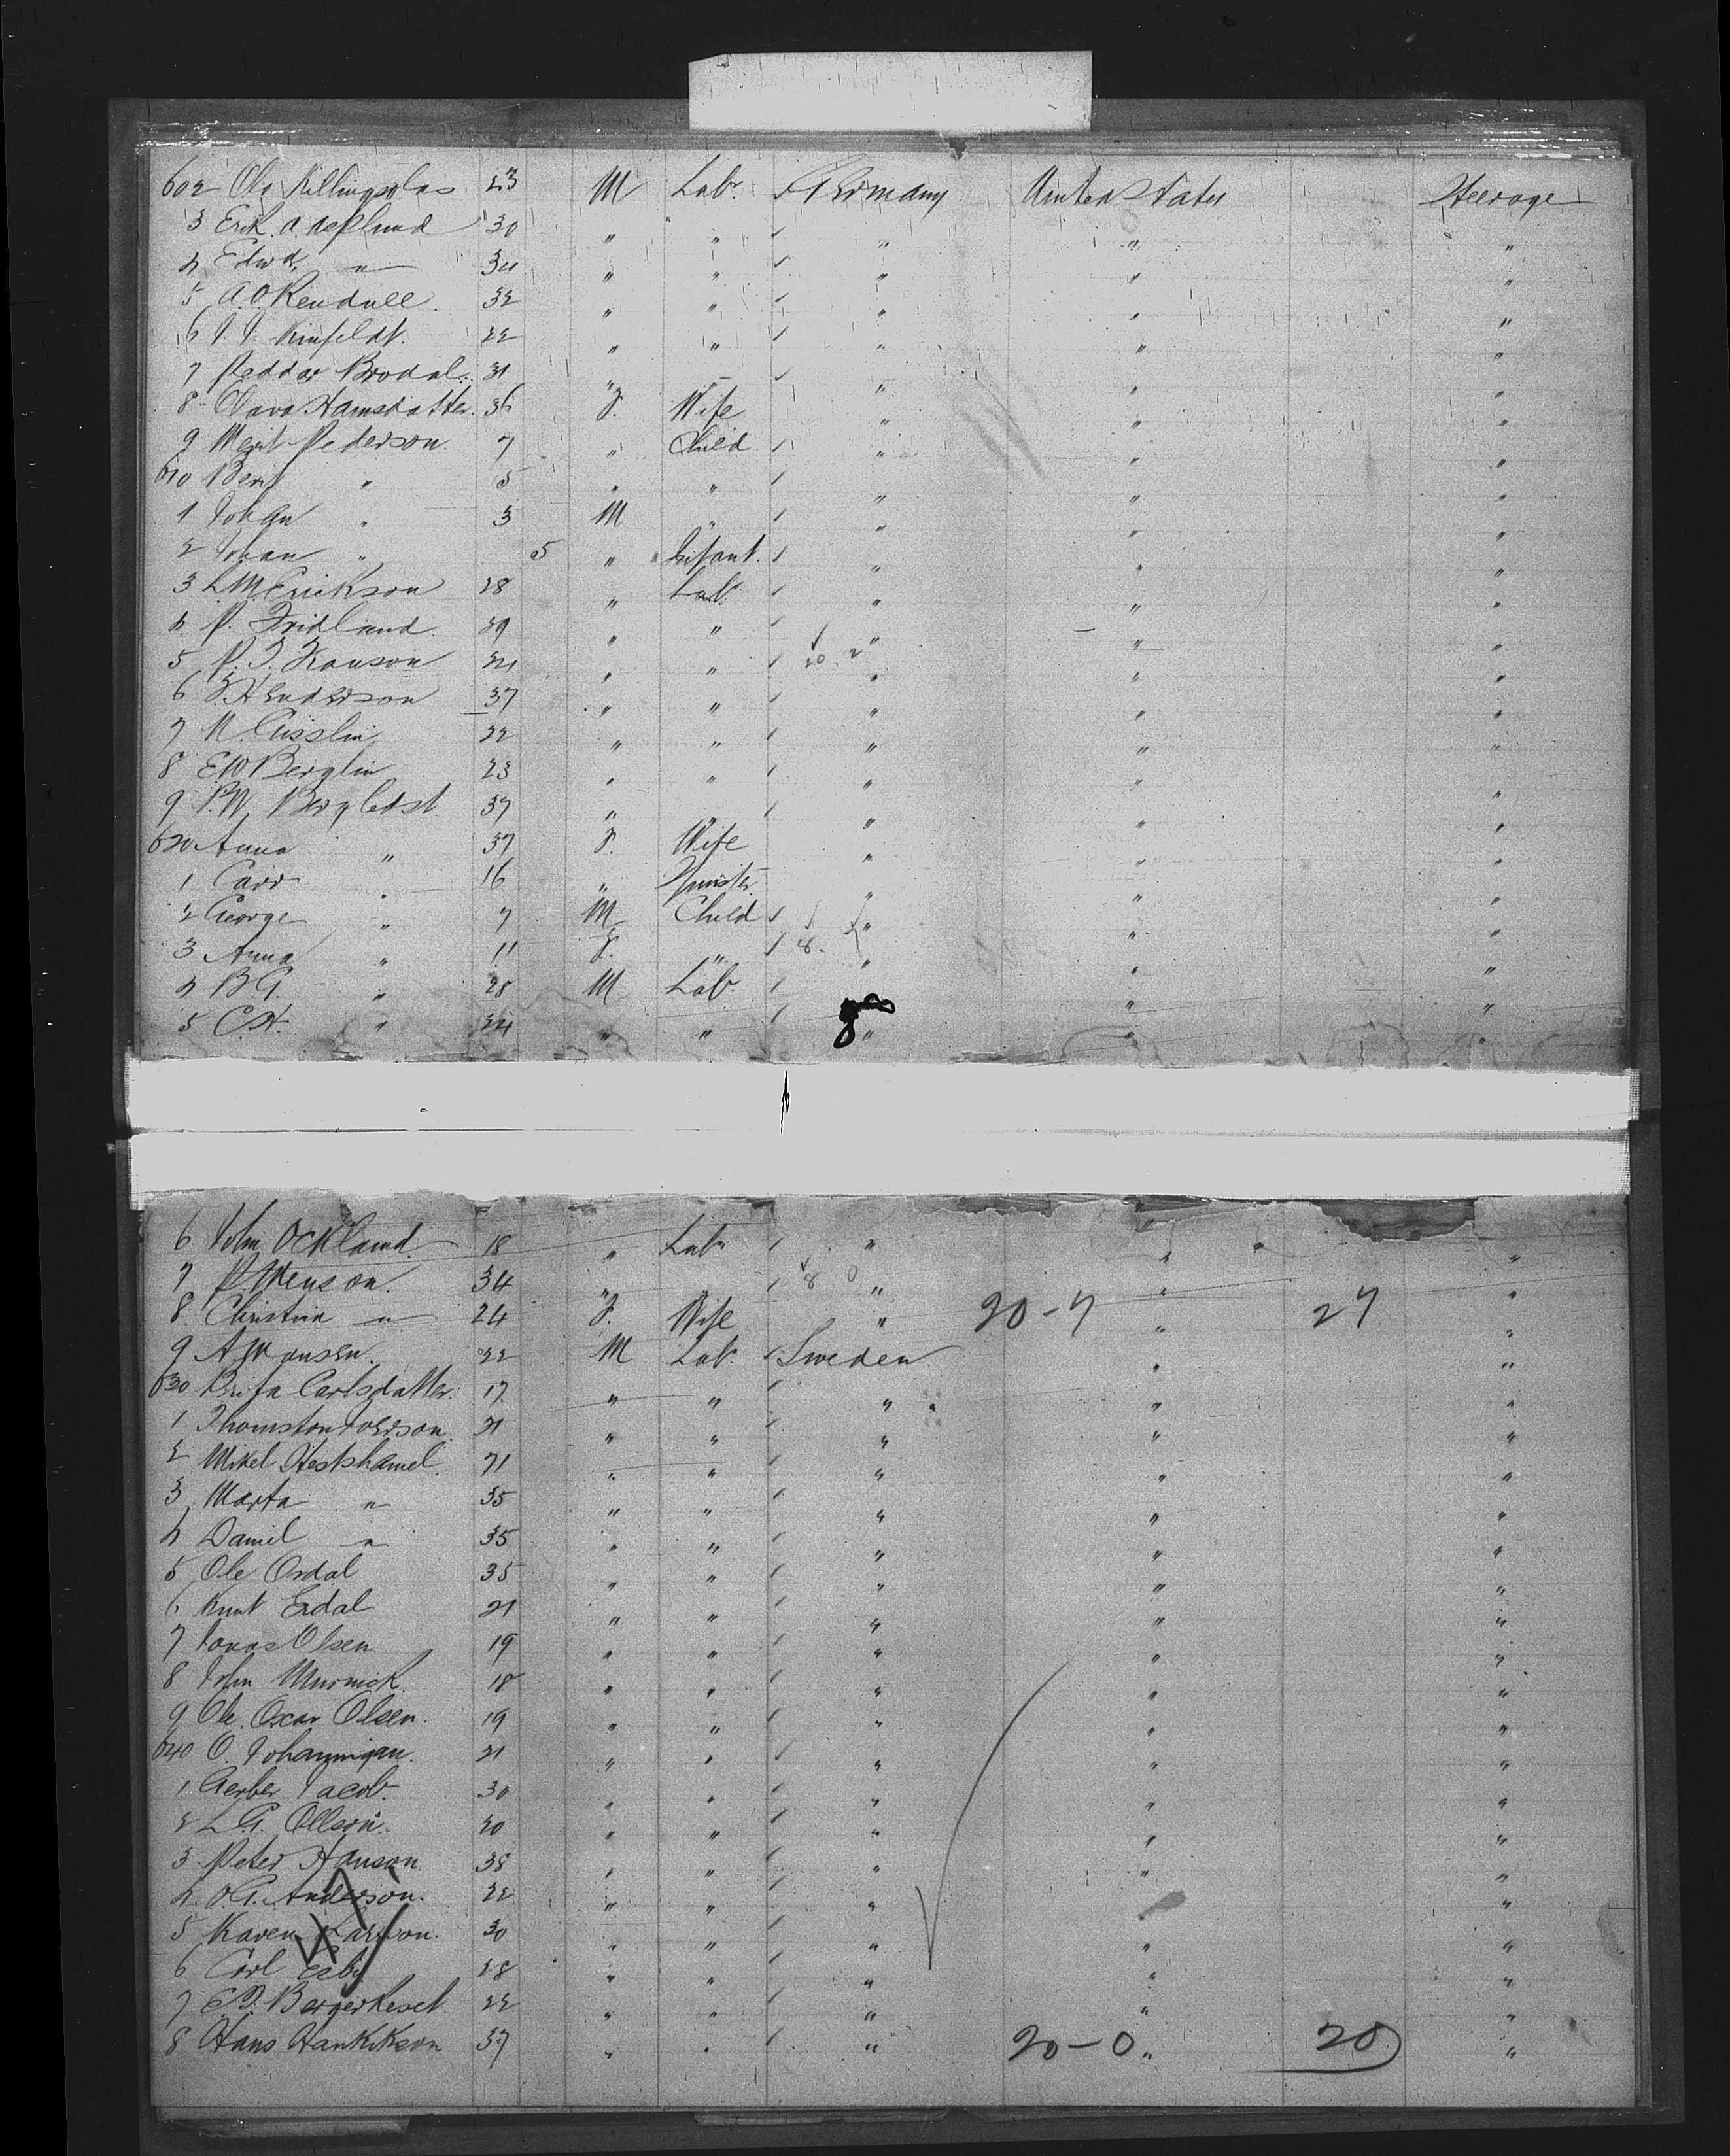 602 Ola Killingsolas 23 M Labr. Germany United States Steerage
3 Erik A. Asplund 30 " " " " "
4 Edwd. " 34 " " " " "
5 A.O. Rendall 32 " " " " "
6 22 " " " " "
7 Peddar Brodal. 31 " " " " "
8 Olava Hamsdatter. 36 F. Wife " " "
9 Merit Pederson 7 " Child " " "
610 Berit " 5 " " " " "
1 Johan " 3 M " " " "
2 Johan " 5 " Infant. " " "
3 L.M. Erickson 28 " Labr. " " "
4 P. Fridlund. 29 " " " " "
5 P.J. 24 " " 20 2 " " "
6 Henderson 37 " " " " "
7 N. Cisslin 22 " " " " "
8 E.W. Berglin 23 " " " " "
9 P.W. 37 " " " " "
620 Anna " 37 F. Wife " " "
1 Carr " 16 " Spinster. " " "
2 George " 7 M Child " " "
3 Anna " 11 F. " 8 " " "
4 B.G. " 28 M Labr. " " "
5 C.H. " 24 " " " " "
6 John Ockland 18 " Labr. " " "
7 34 " " 8 0 " " "
8 Christina " 24 F. Wife " 20-7 " 27 "
9 A. Hansen. 22 M Labr. Sweden " "
630 Brita Carlsdatter. 17 " " " " "
1 Thomston Iverson 21 " " " " "
2 Mikel Hestshamel 71 " " " " "
3 Marta " 35 " " " " "
4 Daniel " 35 " " " " "
5 Ole Ordal 35 " " " " "
6 Knut Erdal 21 " " " " "
7 Jonas Olsen 19 " " " " "
8 John Murnick. 18 " " " " "
9 Ole Oscar Olsen. 19 " " " " "
640 O. Johannigan. 21 " " " " "
1 Gerber Jacob. 30 " " " " "
2 L.G. Ollson. 20 " " " " "
3 Peter Hanson 38 " " " " "
4 O.G. Anderson. 22 " " " " "
5 Karen Larson. 30 " " " " "
6 Carl 28 " " " " "
7 22 " " " " "
8 Hans Hankikson 37 " " " 20-0 " 20 "